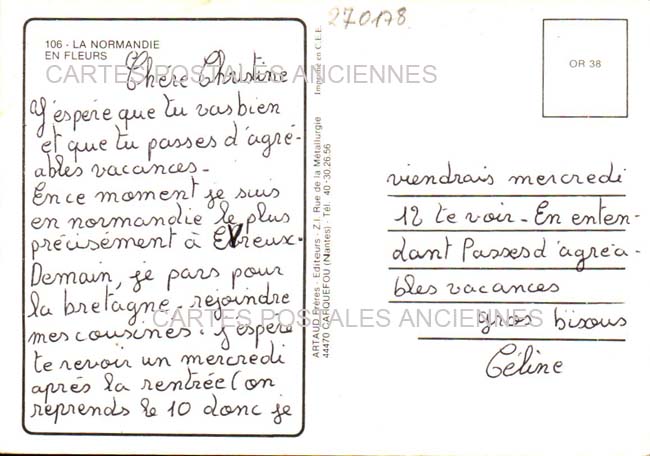 270178
106 - LA NORMANDIE
EN FLEURS
Chère Christine
CARTES POSTALES ANCIENNES
J'espère que tu vas bien
et que tu passes d'agré-
ables vacances -
En ce moment je suis
en normandie le plus
précisément à Evreux.
Demain, je pars pour
la bretagne - rejoindre
mes cousines. j'espère
CARTES POSTALES ANCIENNES
te revoir un mercredi
après la rentrée (on
reprends le 10 donc je
ARTAUD Frères - Editeurs - Z.I. Rue de la Métallurgie
44470 CARQUEFOU (Nantes) - Tél. 40-30.26.56
Imprimé en C.E.E.
OR 38
viendrais mercredi
12 te voir - En enten-
dant Passes d'agréa-
bles vacances
gros bisous
Céline